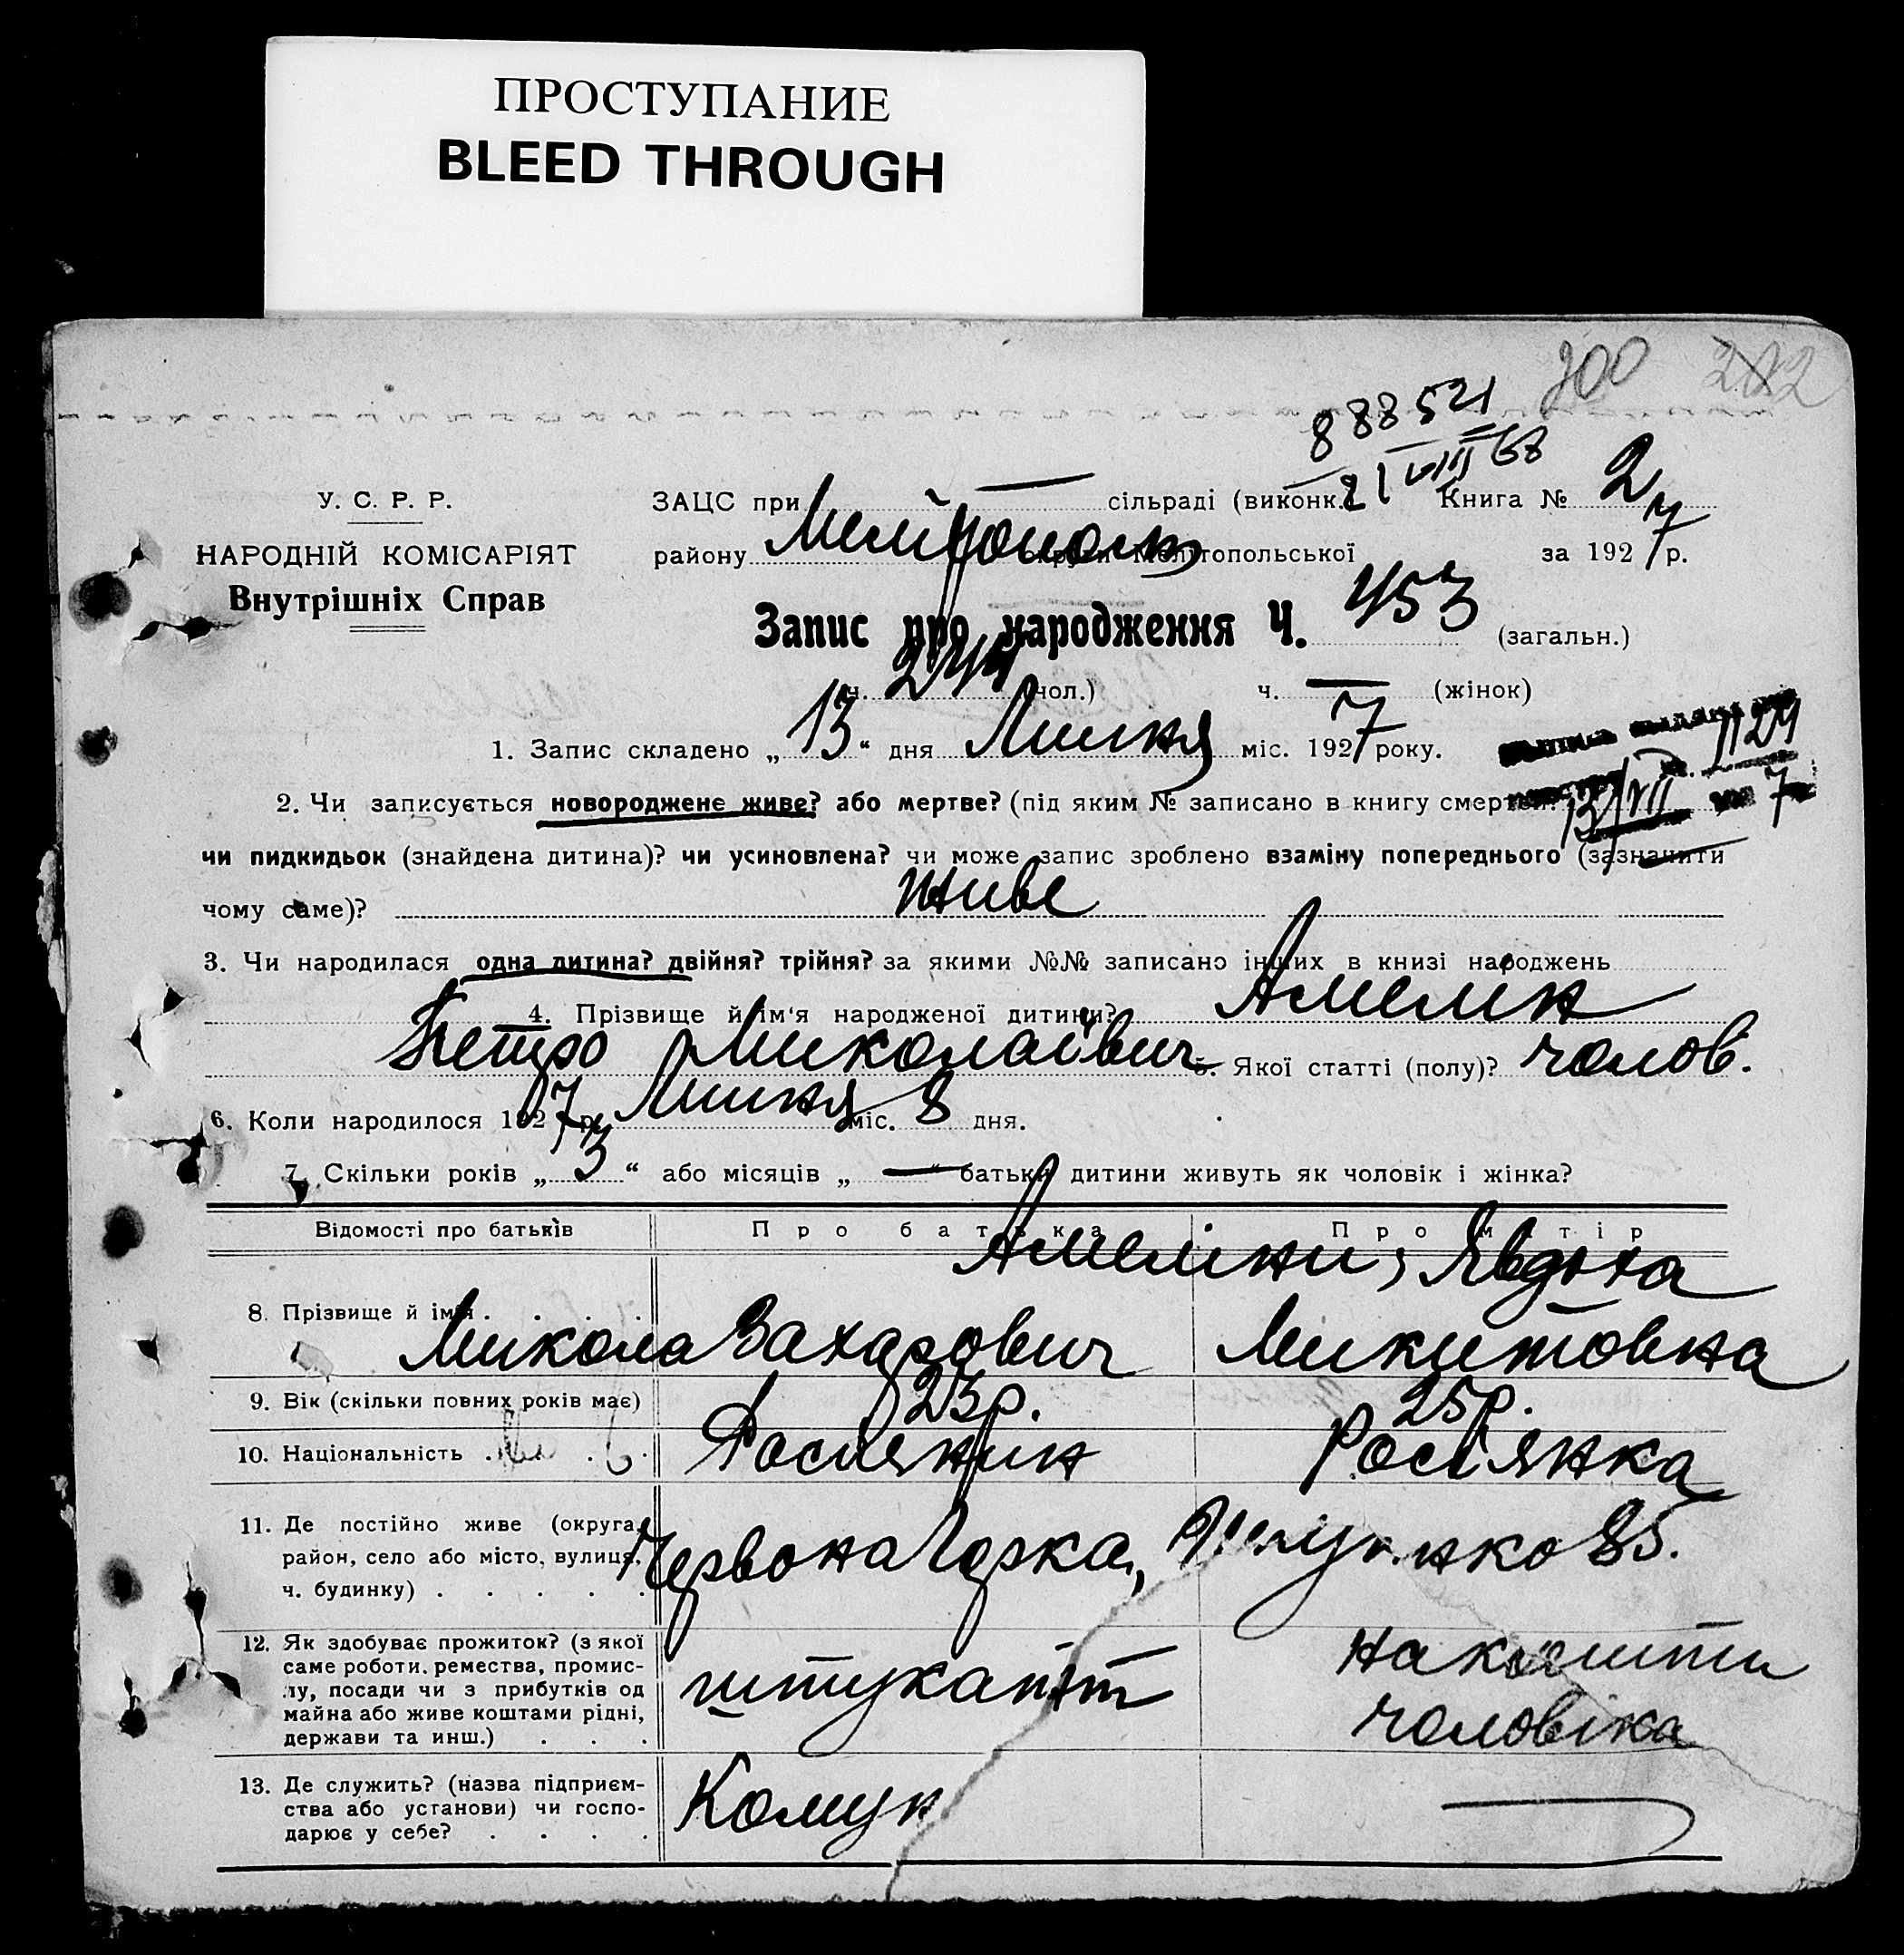 ПРОСТУПАНИЕ
BLEED THROUGH
200 202
888521
21 VIII 68
У. С. Р. Р.
НАРОДНІЙ КОМІСАРІЯТ
Внутрішніх Справ
ЗАЦС при — сільраді (виконк.) Книга № 2
району Мелітополь округи Мелітопольської за 1927 р.
Запис про народження Ч. 453 (загальн.)
ч. 244 (чол.) ч. — (жінок)
1. Запис складено „13“ дня Липня міс. 1927 року.
1129
13/VII 7
2. Чи записується новороджене живе? або мертве? (під яким № записано в книгу смертей?)
чи пидкидьок (знайдена дитина)? чи усиновлена? чи може запис зроблено взаміну попереднього (зазначити
чому саме)? живе
3. Чи народилася одна дитина? двійня? трійня? за якими №№ записано інших в книзі народжень
4. Прізвище й ім'я народженої дитини? Амелин
Петро Миколаївич 5. Якої статті (полу)? чолов.
6. Коли народилося 1927 р. Липня міс. 8 дня.
7. Скільки років „3“ або місяців „—“ батьки дитини живуть як чоловік і жінка?
Відомості про батьків Про батька Про матір
8. Прізвище й ім'я . . . . Амелини, Явдоха
Микола Захарович Микитовна
9. Вік (скільки повних років має) 23р. 25р.
10. Національність . . . Росиянин Росіянка
11. Де постійно живе (округа,
район, село або місто, вулиця,
ч. будинку) . . . . . Червона Горка, 85.
12. Як здобуває прожиток? (з якої
саме роботи, ремества, промис-
лу, посади чи з прибутків од
майна або живе коштами рідні,
держави та инш.) . . . штукант на кошти
чоловіка
13. Де служить? (назва підприєм-
ства або установи) чи госпо-
дарює у себе? . . . . Комун —